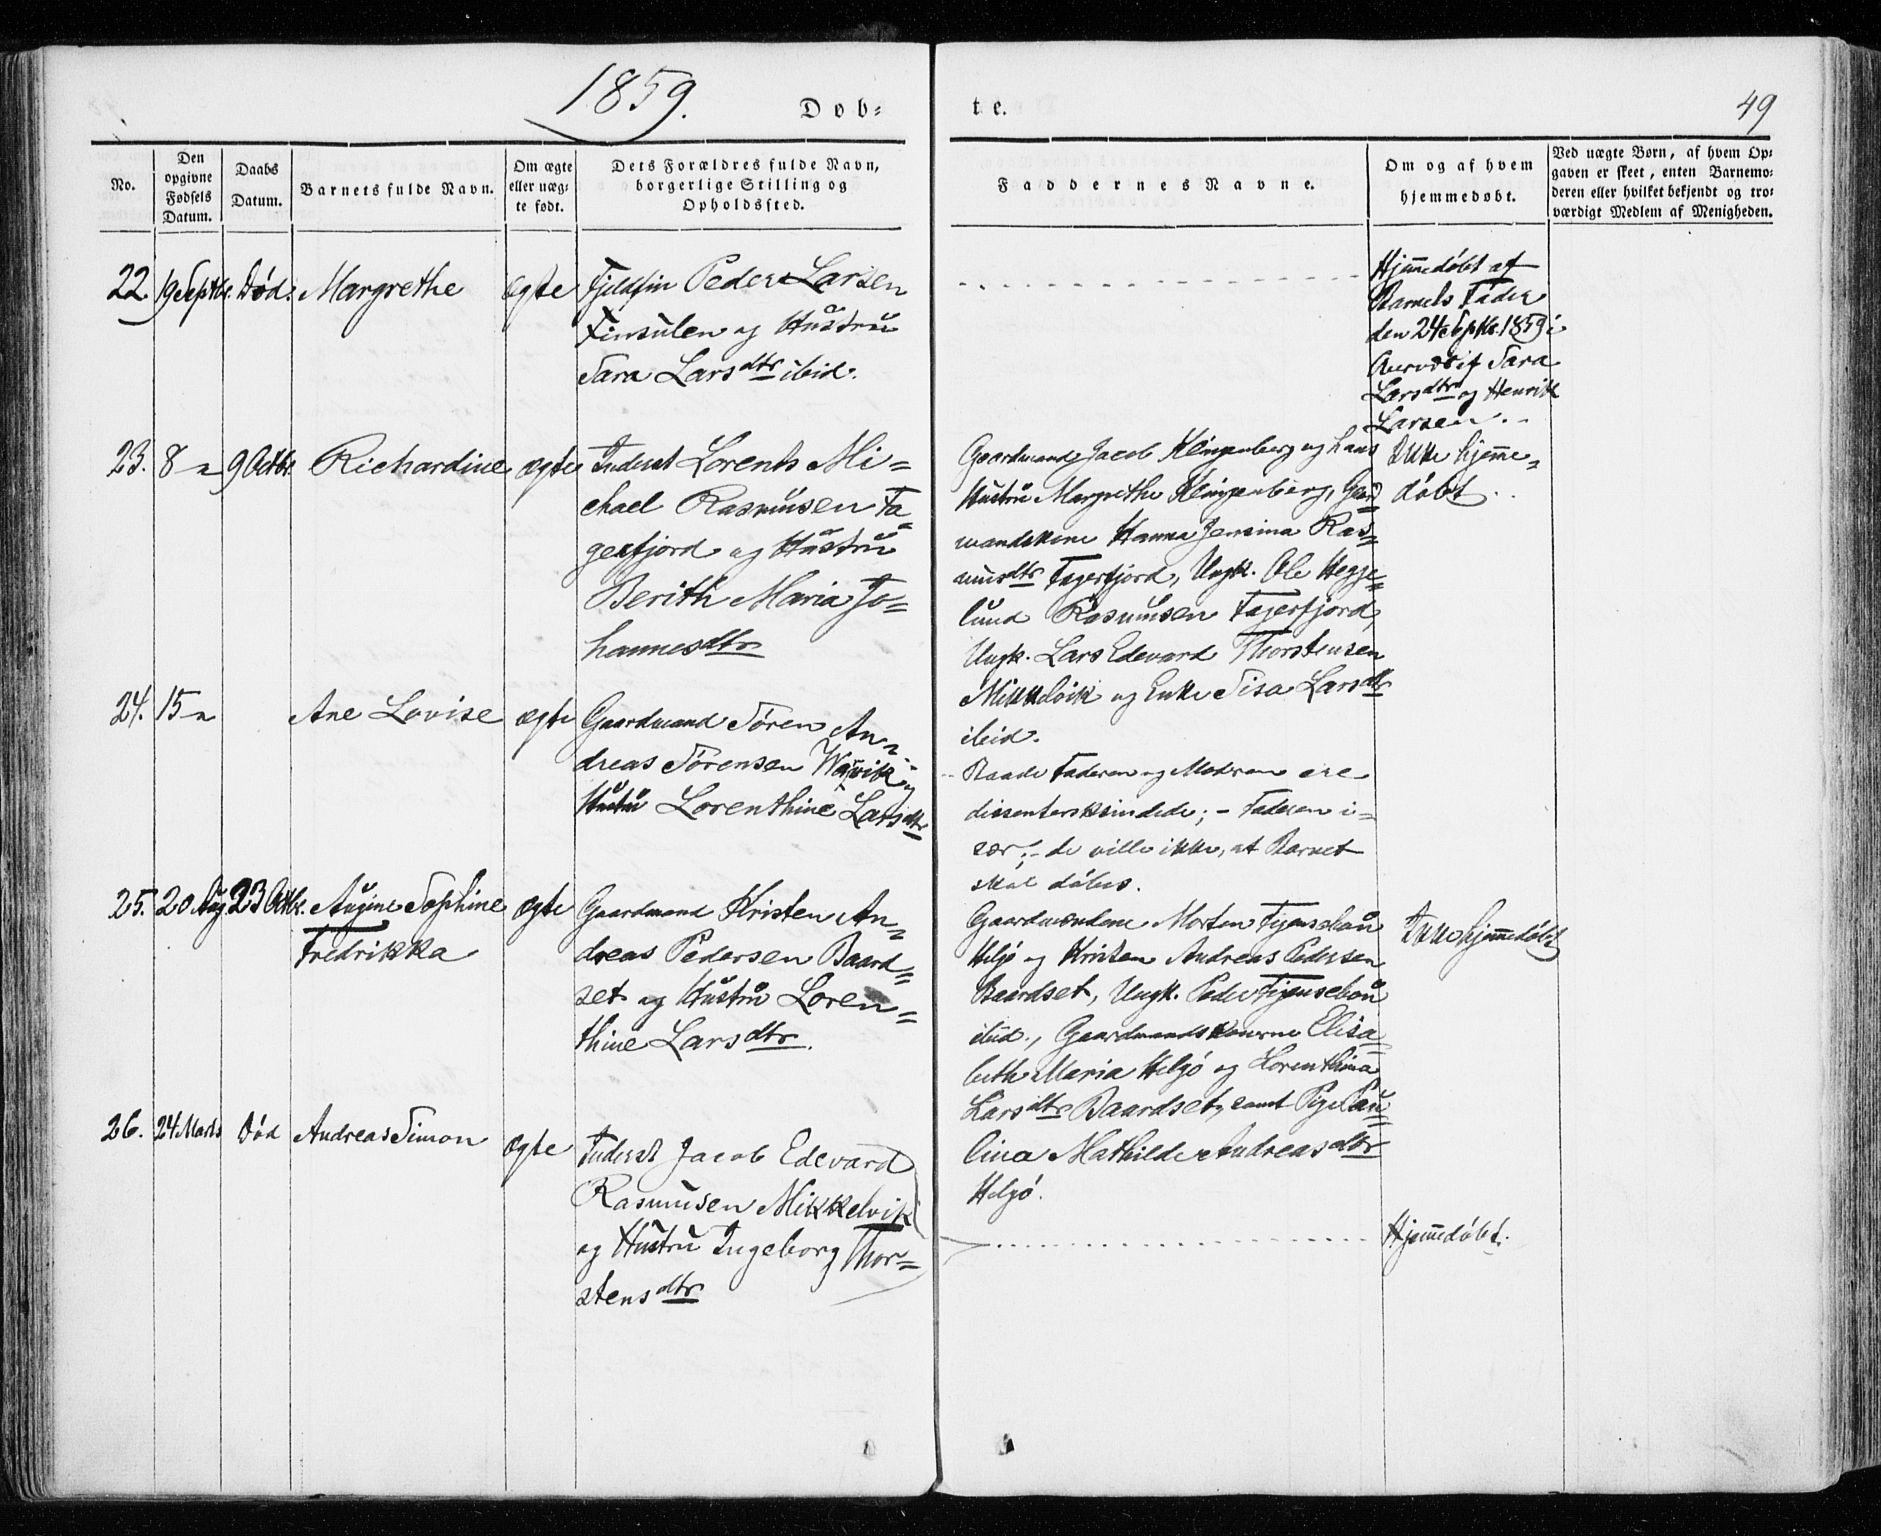 1859.
Døb=
te.
49
No.
Den
opgivne
Fødsels
Datum.
Daabs
Datum.
Barnets fulde Navn.
Om ægte
eller uæg-
te født.
Dets Forældres fulde Navn,
borgerlige Stilling og
Opholdssted.
Faddernes Navne.
Om og af hvem
hjemmedøbt.
Ved uægte Børn, af hvem Op-
gaven er skeet, enten Barnemo-
deren eller hvilket bekjendt og tro-
værdigt Medlem af Menigheden.
22. 19 Septbr. Død. Margrethe ægte
Fjeldfin Peder Larsen
Finsulen og Hustru
Sara Larsdtr ibid.
Hjemmedøbt af
Barnets Fader
den 24 Septbr. 1859 i
Sara
Larsdtr og Henrik
Larsen.
23. 8 9 Octbr. Richardine ægte
Inderst Lorents Mi=
chael Rasmusen Fa=
gerfjord og Hustru
Berith Maria Jo=
hannesdtr
Gaardmand Jacob Klingenberg og hans
Hustru Margrethe Klingenberg, Gaard
mandskone Hanna Jensina Ras=
musdtr Fagerfjord, Ungk. Ole Hegge=
lund Rasmusen Fagerfjord,
Ungk. Lars Edevard Thorstensen
Mikkelvik og Enke Sisa Larsdtr
ibid.
Ikke hjemme=
døbt.
24. 15 Ane Lovise ægte
Gaardmand Sören An=
dreas Sörensen
Hustru Lorenthine Larsdtr
Baade Faderen og Moderen ere
dissentersksindede; - Faderen i=
sær; - de ville ikke, at Barnet
skal døbes.
25. 20 Aug 23 Octbr. Augine Sophine ægte
Fredrikka
Gaardmand Kristen An=
dreas Pedersen Baard=
set og Hustru Loren=
thine Larsdtr.
Gaardmændene Morten
Helgö og Kristen Andreas Pedersen
Baardset, Ungk. Peder
ibid., Gaardmandskonerne Elisa
beth Maria Helgö og Lorenthina
Larsdtr Baardset, samt Pige Pau=
lina Mathilde Andreasdtr
Helgö.
Ikke hjemmedøbt
26. 24 Marts Død Andreas Simon ægte
Inderst Jacob Edevard
Rasmusen Mikkelvik
og Hustru Ingeborg Thor=
stensdtr
Hjemmedøbt.